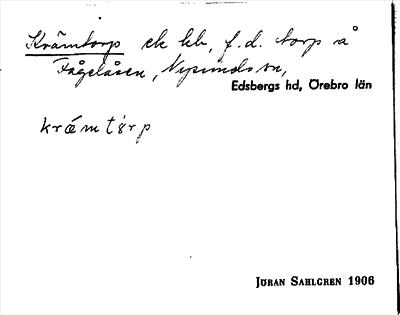 Krämtorp ek kb, f.d. torp å
Fågelåsen, Nysunds sn,
Edsbergs hd, Örebro län
krämtörp
JÖRAN SAHLGREN 1906